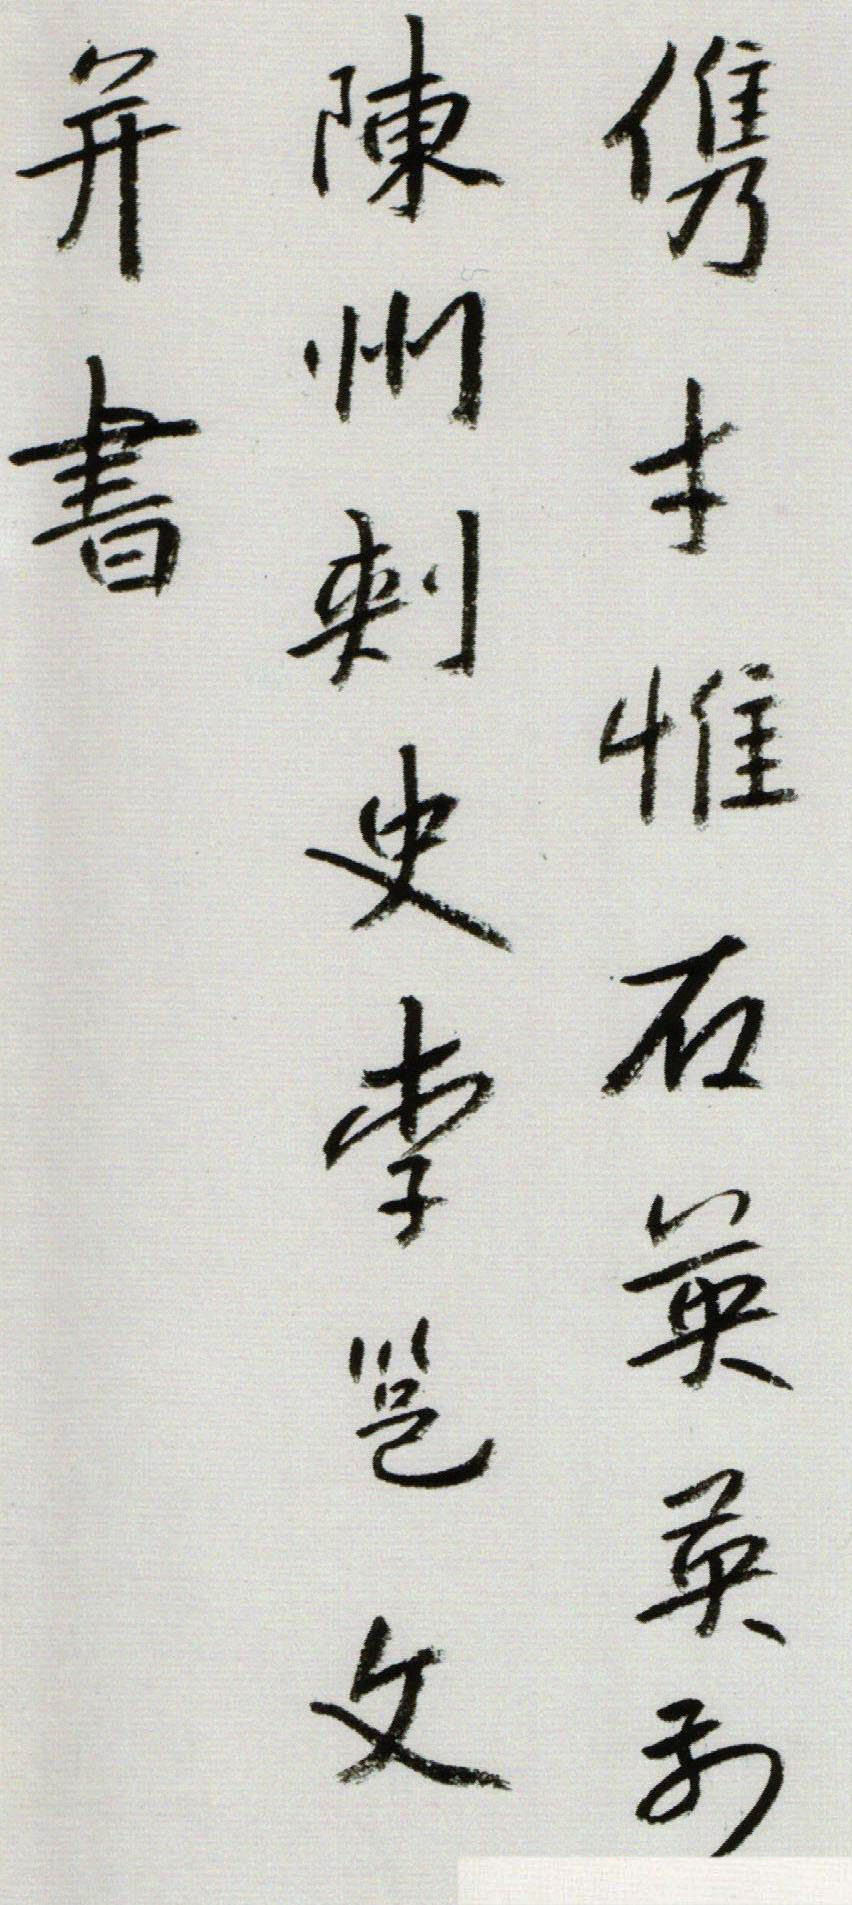 儁才惟石英英別
陳州刺史李邕文
并書